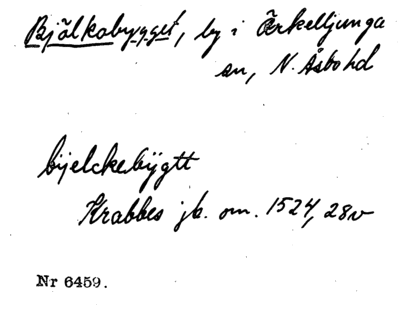 Bjälkabygget, by i Örkelljunga
sn, N. Åsbo hd
bijelckebÿgtt
Krabbes jb. om. 1524, 28v
Nr 6459.